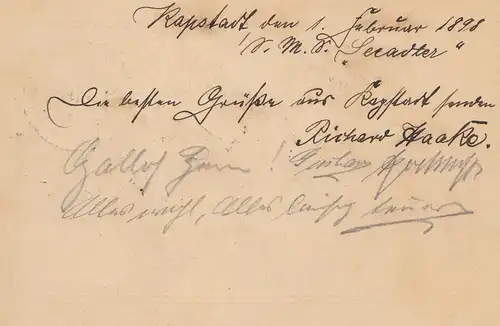 Kapstadt den 1. Februar 1898
S. M. S. „Seeadler“
Die besten Grüße aus Kapstadt senden
Richard Haake.
!
Alles wohl, Alles teuer